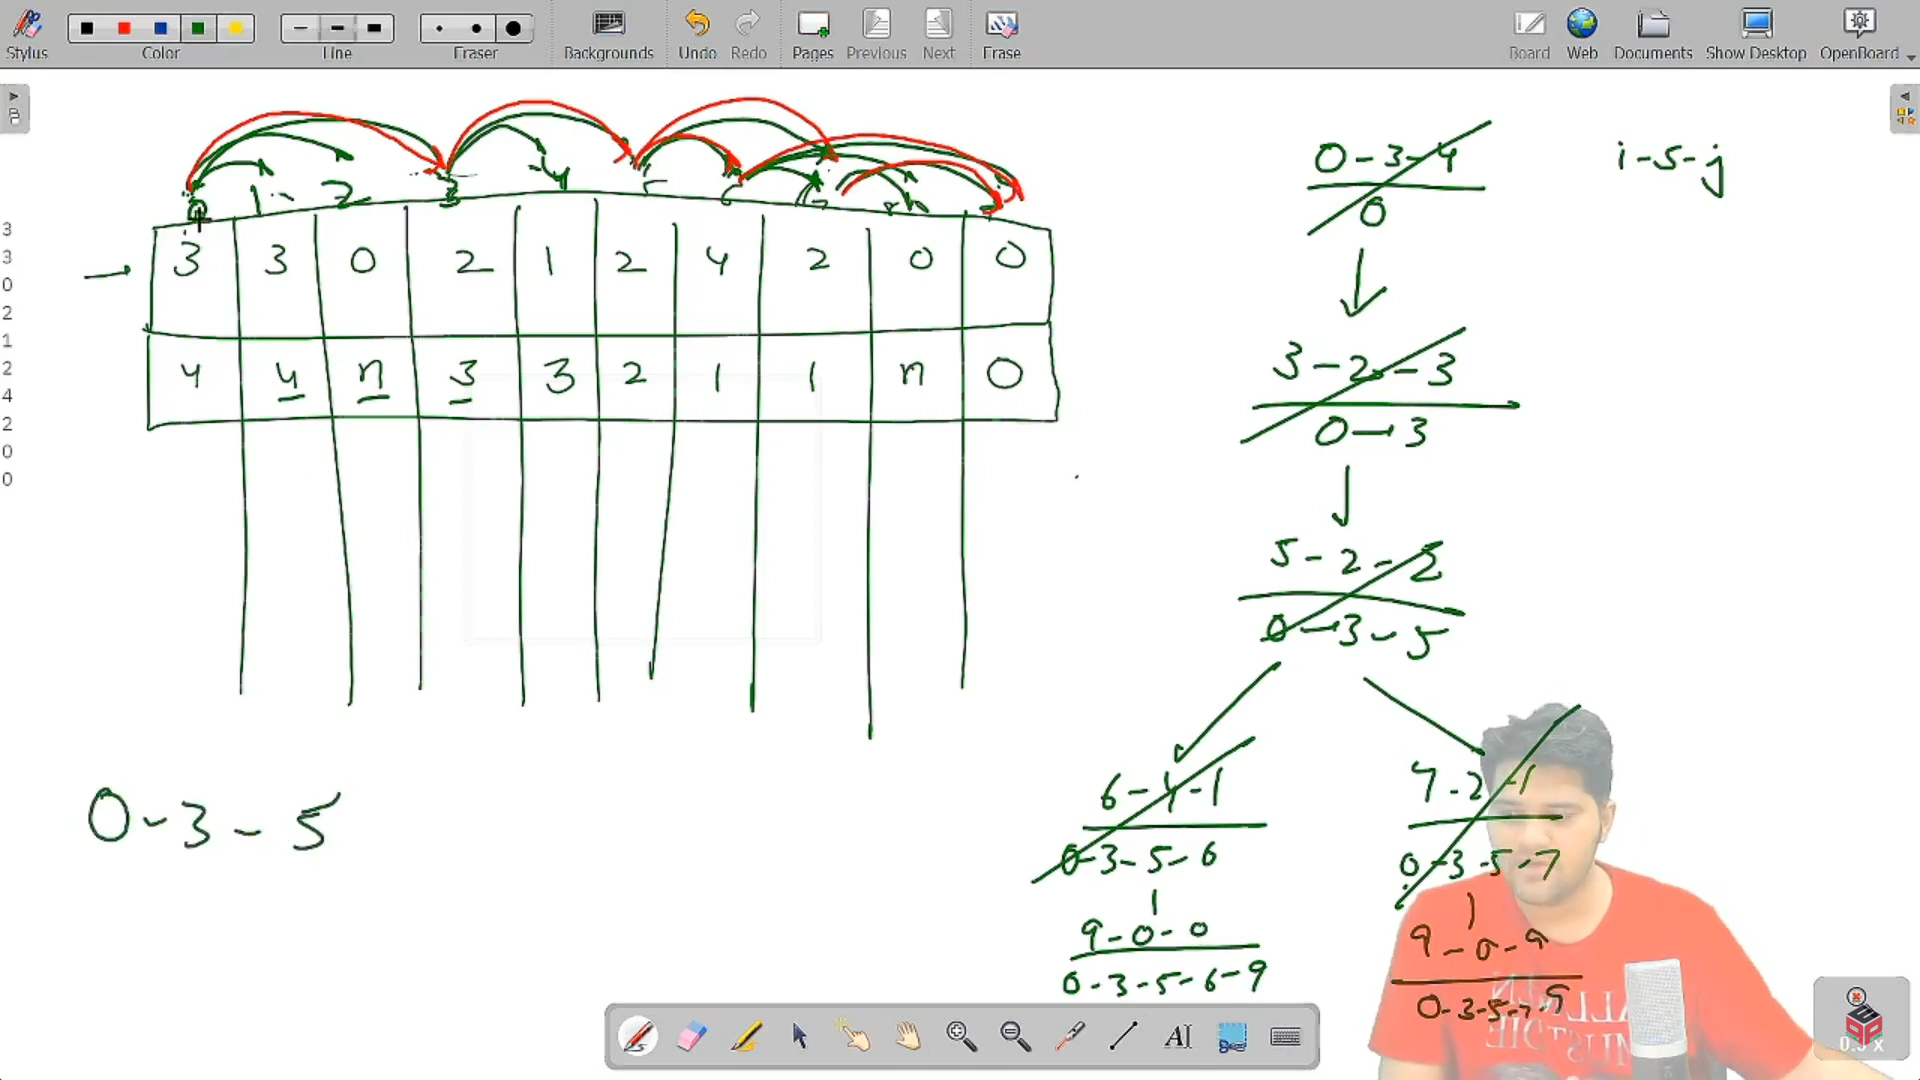 Stylus Color Line Eraser Backgrounds Undo Redo Pages Previous Next Erase Board Web Documents Show Desktop OpenBoard
3
3
0
2
1
2
4
2
0
0
0 1 2 3 4 5 6 7 8 9
3 3 0 2 1 2 4 2 0 0
4 4 n 3 3 2 1 1 n 0
0 - 3 - 5
0 - 3 - 4
0
i - s - j
3 - 2 - 3
0 → 3
5 - 2 - 2
0 → 3 - 5
6 - 4 - 1
0 - 3 - 5 - 6
9 - 0 - 0
0 - 3 - 5 - 6 - 9
7 - 2 - 1
0 - 3 - 5 - 7
9 - 0 - 9
0 - 3 - 5 - 7 - 9